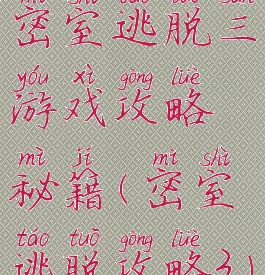 mì shì táo tuō sān
密室逃脱三
yóu xì gōng lüè
游戏攻略
mì jí mì shì
秘籍(密室
táo tuō gōng lüè
逃脱攻略3)